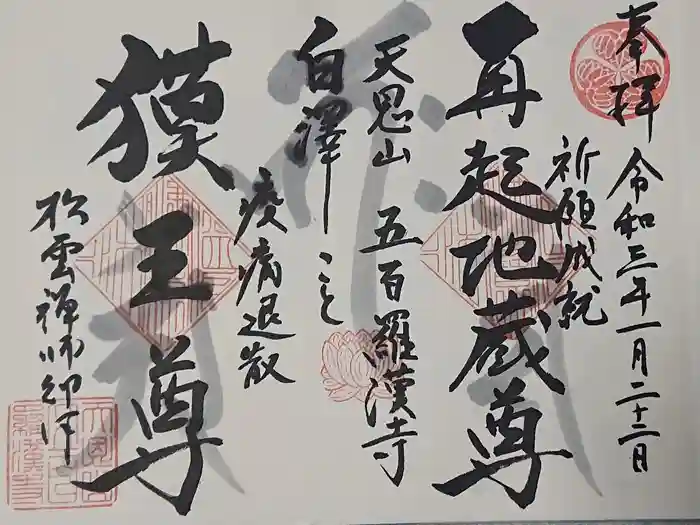 奉拝
令和三年一月二十二日
祈願成就
再起地蔵尊
天恩山 五百羅漢寺
白澤こと
疫病退散
獏王尊
松雲禅師御作